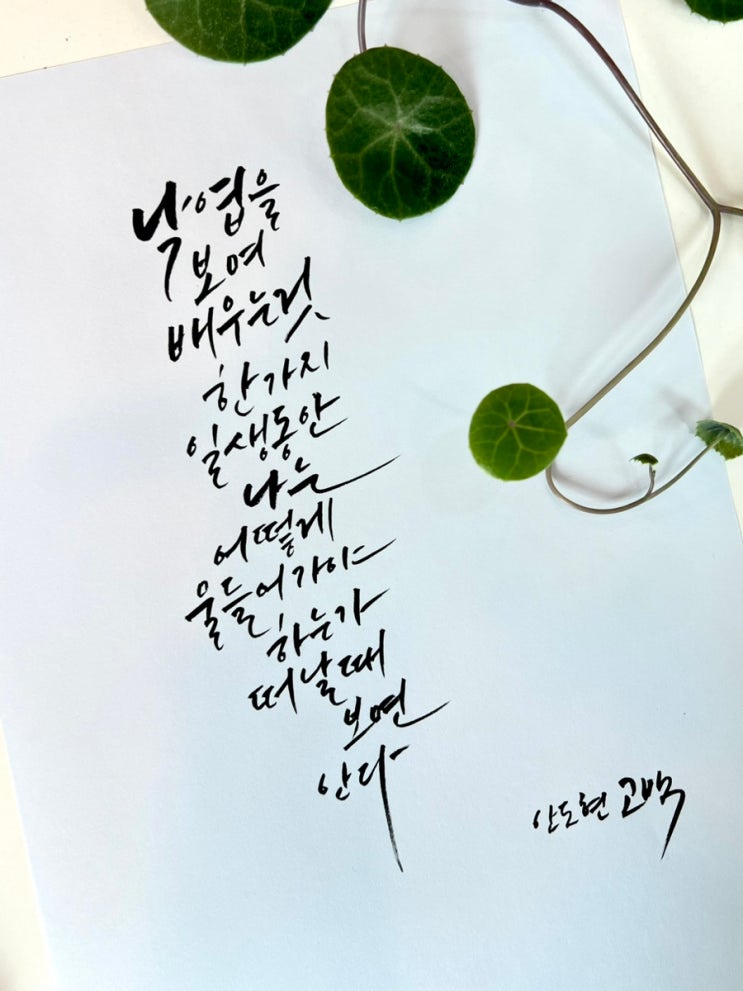 낙엽을
보여
배우는것
한가지
일생동안
나는
어떻게
울들어가야
하는가
떠날때
보면
안다
안도현 고백